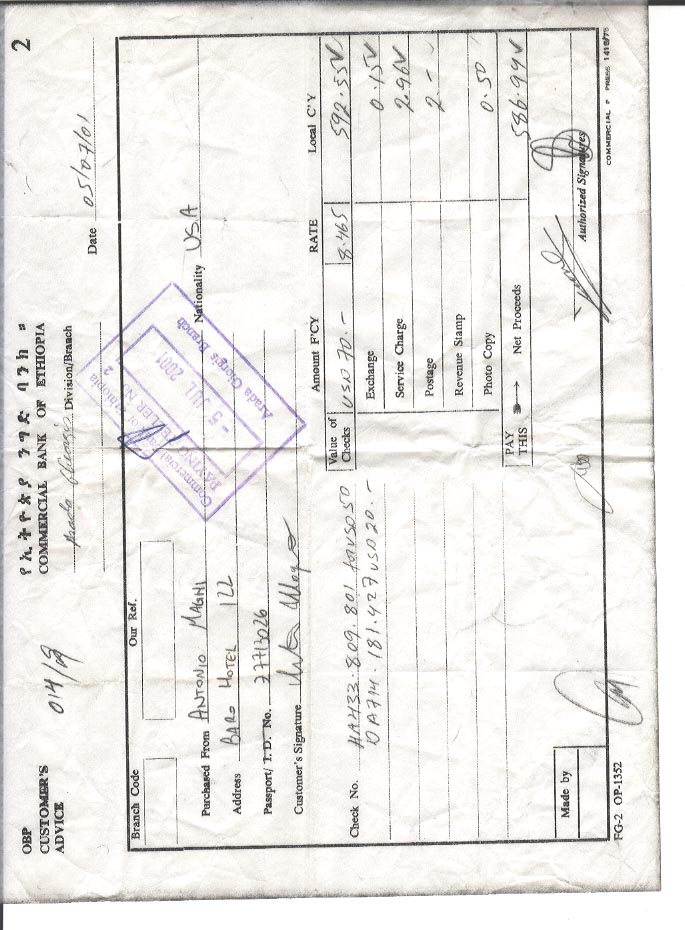 2
OBP
CUSTOMER'S
ADVICE
014/
የኢትዮጵያ ንግድ ባንክ ።
COMMERCIAL BANK OF ETHIOPIA
Arada Ghiorgis Division/Branch
Date 05/07/01
Branch Code
Our Ref.
Purchased From ANTONIO MAGNI Nationality USA
Address BARO HOTEL 122
Passport/I.D. No. 27713026
Customer's Signature
Commercial Bank of Ethiopia
PAYING TELLER NO.
- 5 2001
Arada Giorgis Branch
Amount F'CY RATE Local C'Y
Check No. HA433.809.801 USD 50
DA714.181.427 USD 20.-
Value of Checks USD 70.- 8.465 592.55
Exchange 0.15
Service Charge 2.96
Postage 2.-
Revenue Stamp
Photo Copy 0.50
PAY THIS → Net Proceeds 586.94
Made by
Authorized Signatures
FG-2 OP-1352
COMMERCIAL P PRESS 1416/75